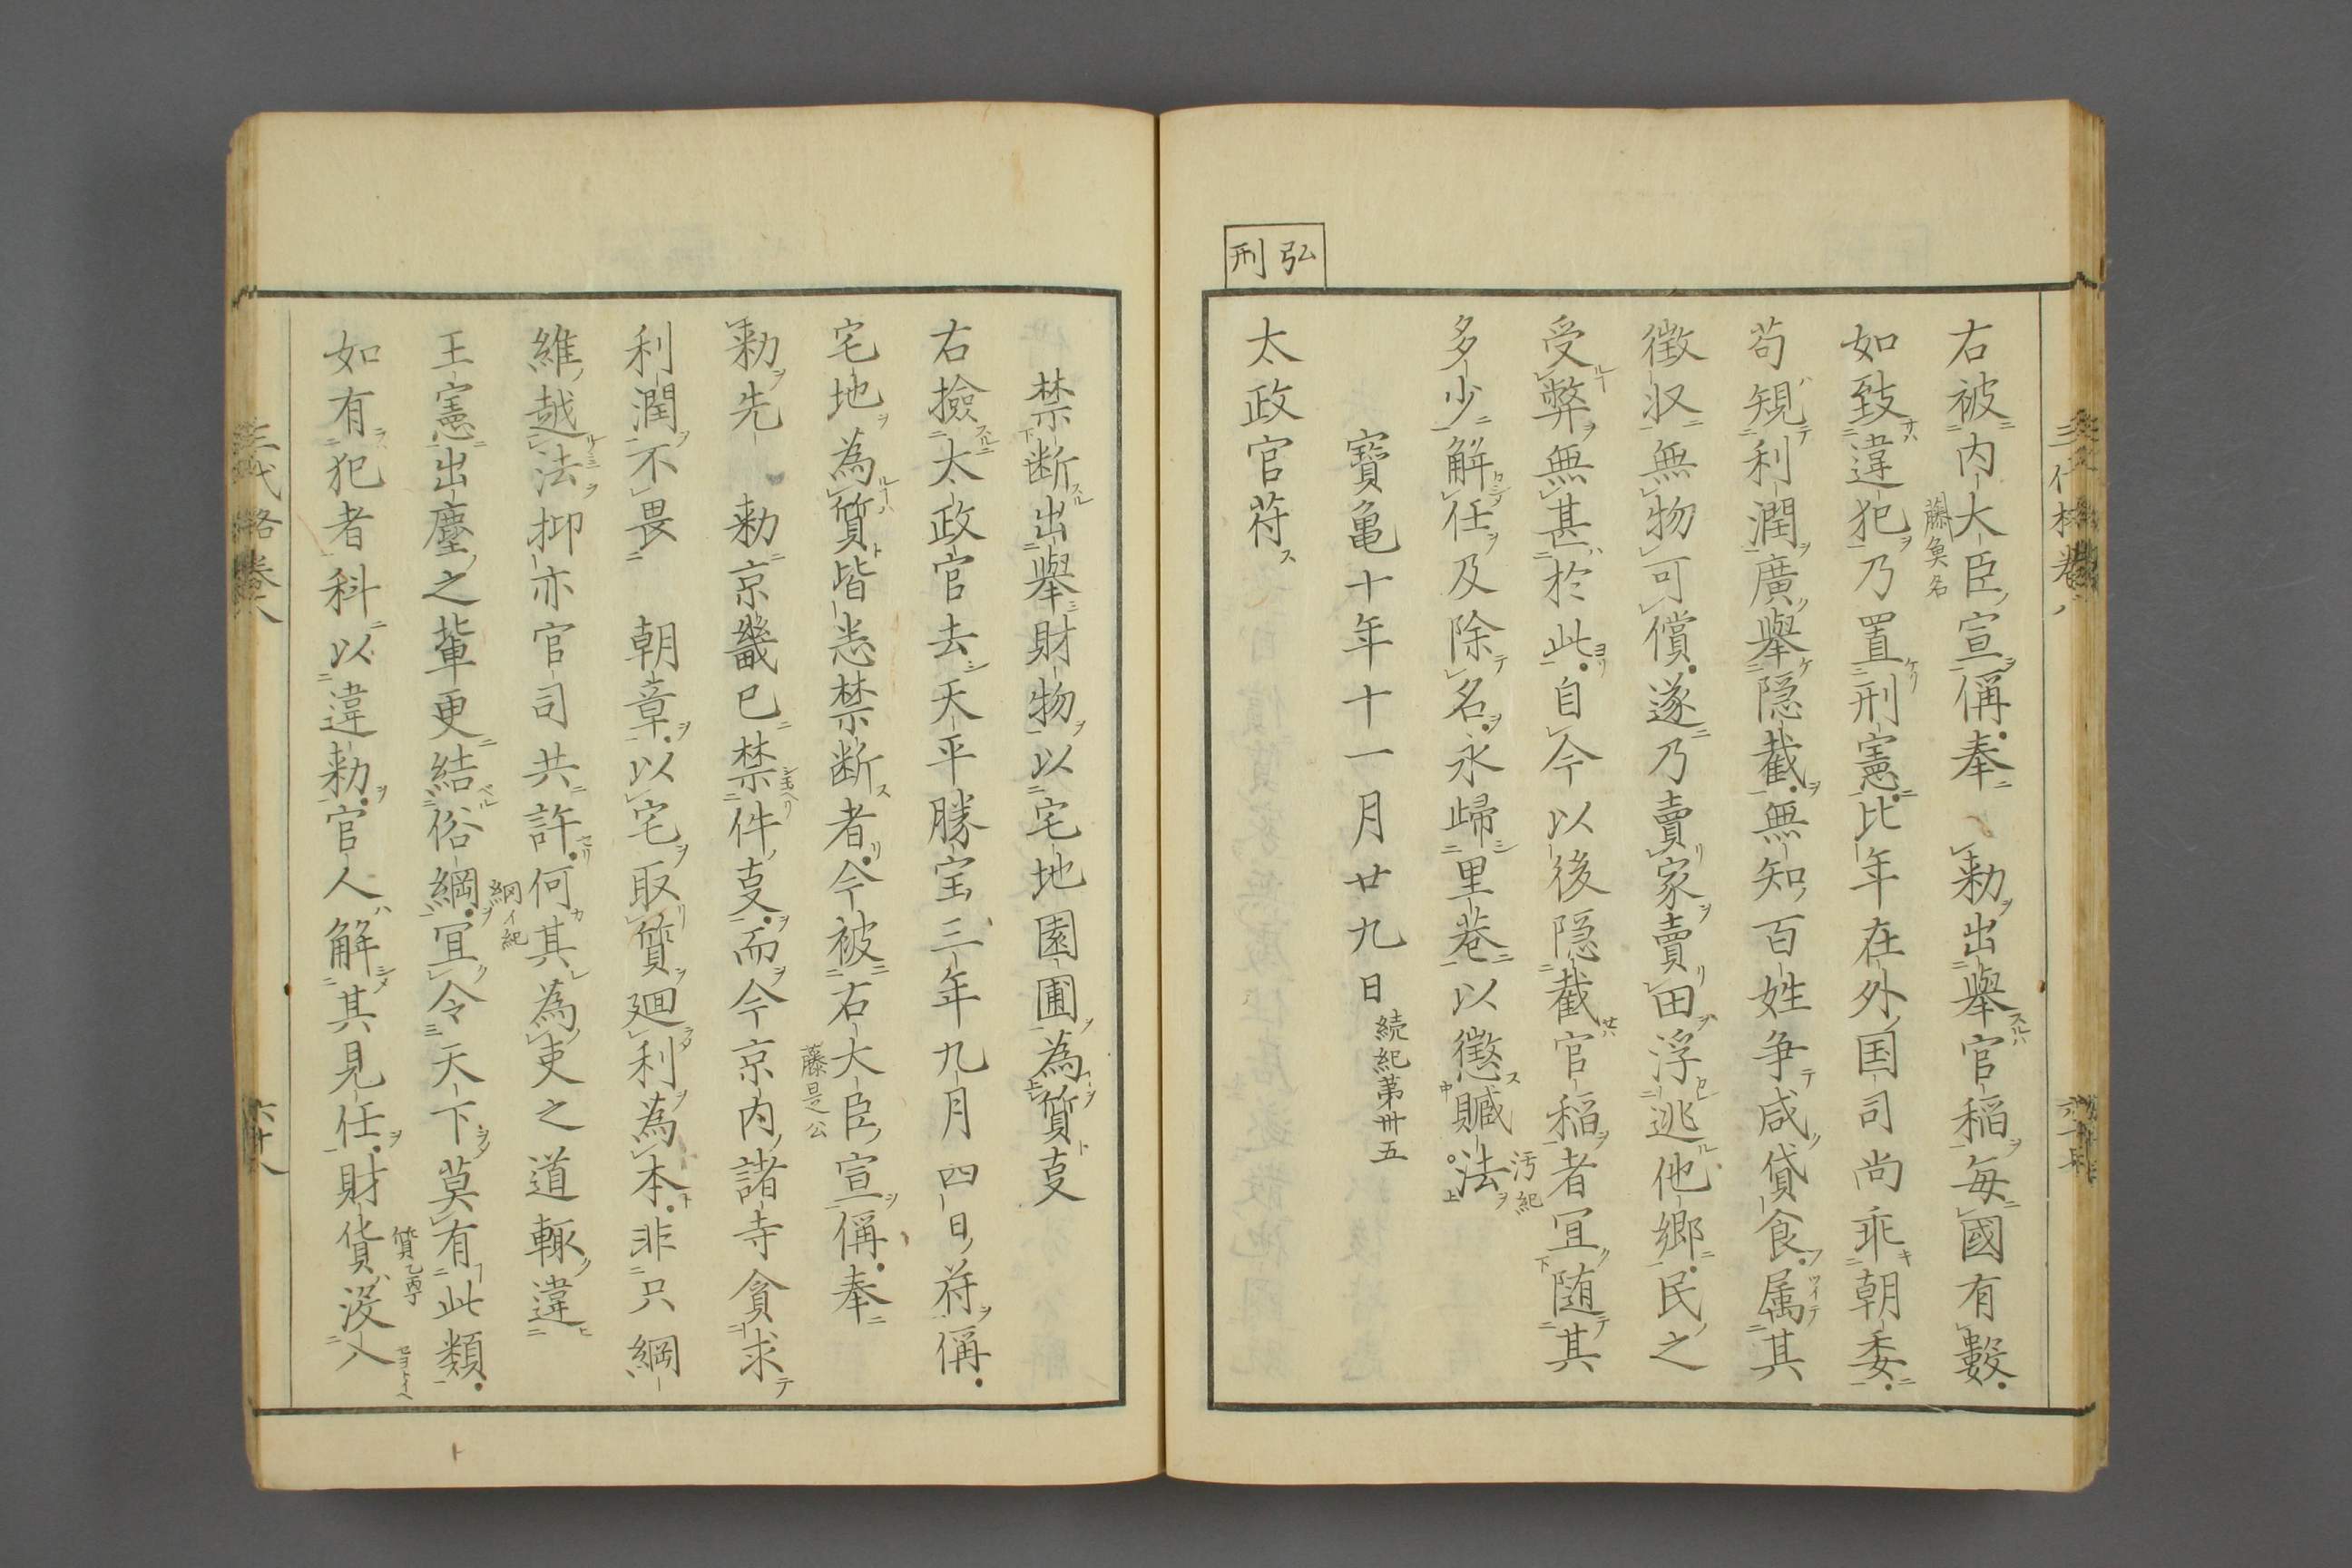 右被内大臣宣偁奉 勅出擧官稲毎國有數
藤奐名
如致違犯乃置刑憲比年在外国司尚乖朝委
苟規利潤廣擧隠截無知百姓争咸貸食属其
徴収無物可償遂乃賣家賣田浮逃他郷民之
受弊無甚於此自今以後隠截官稲者宜随其
多少解任及除名永歸里巷以懲贓法
汚紀
寶亀十年十一月廿九日 続紀第卅五
弘刑
太政官苻
禁断出擧財物以宅地園圃為質支
右撿太政官去天平勝宝三年九月四日苻偁
宅地為質皆悉禁断者今被右大臣宣偁奉
藤是公
勅先 勅京畿已禁件支而今京内諸寺貪求
利潤不畏 朝章以宅取質廻利為本非只綱
維越法抑亦官司共許何其為吏之道輙違
綱イ紀
王憲出塵之輩更結俗網宜令天下莫有此類
如有犯者科以違勅官人解其見任財貨没入
質乙丙丁
三代格巻八